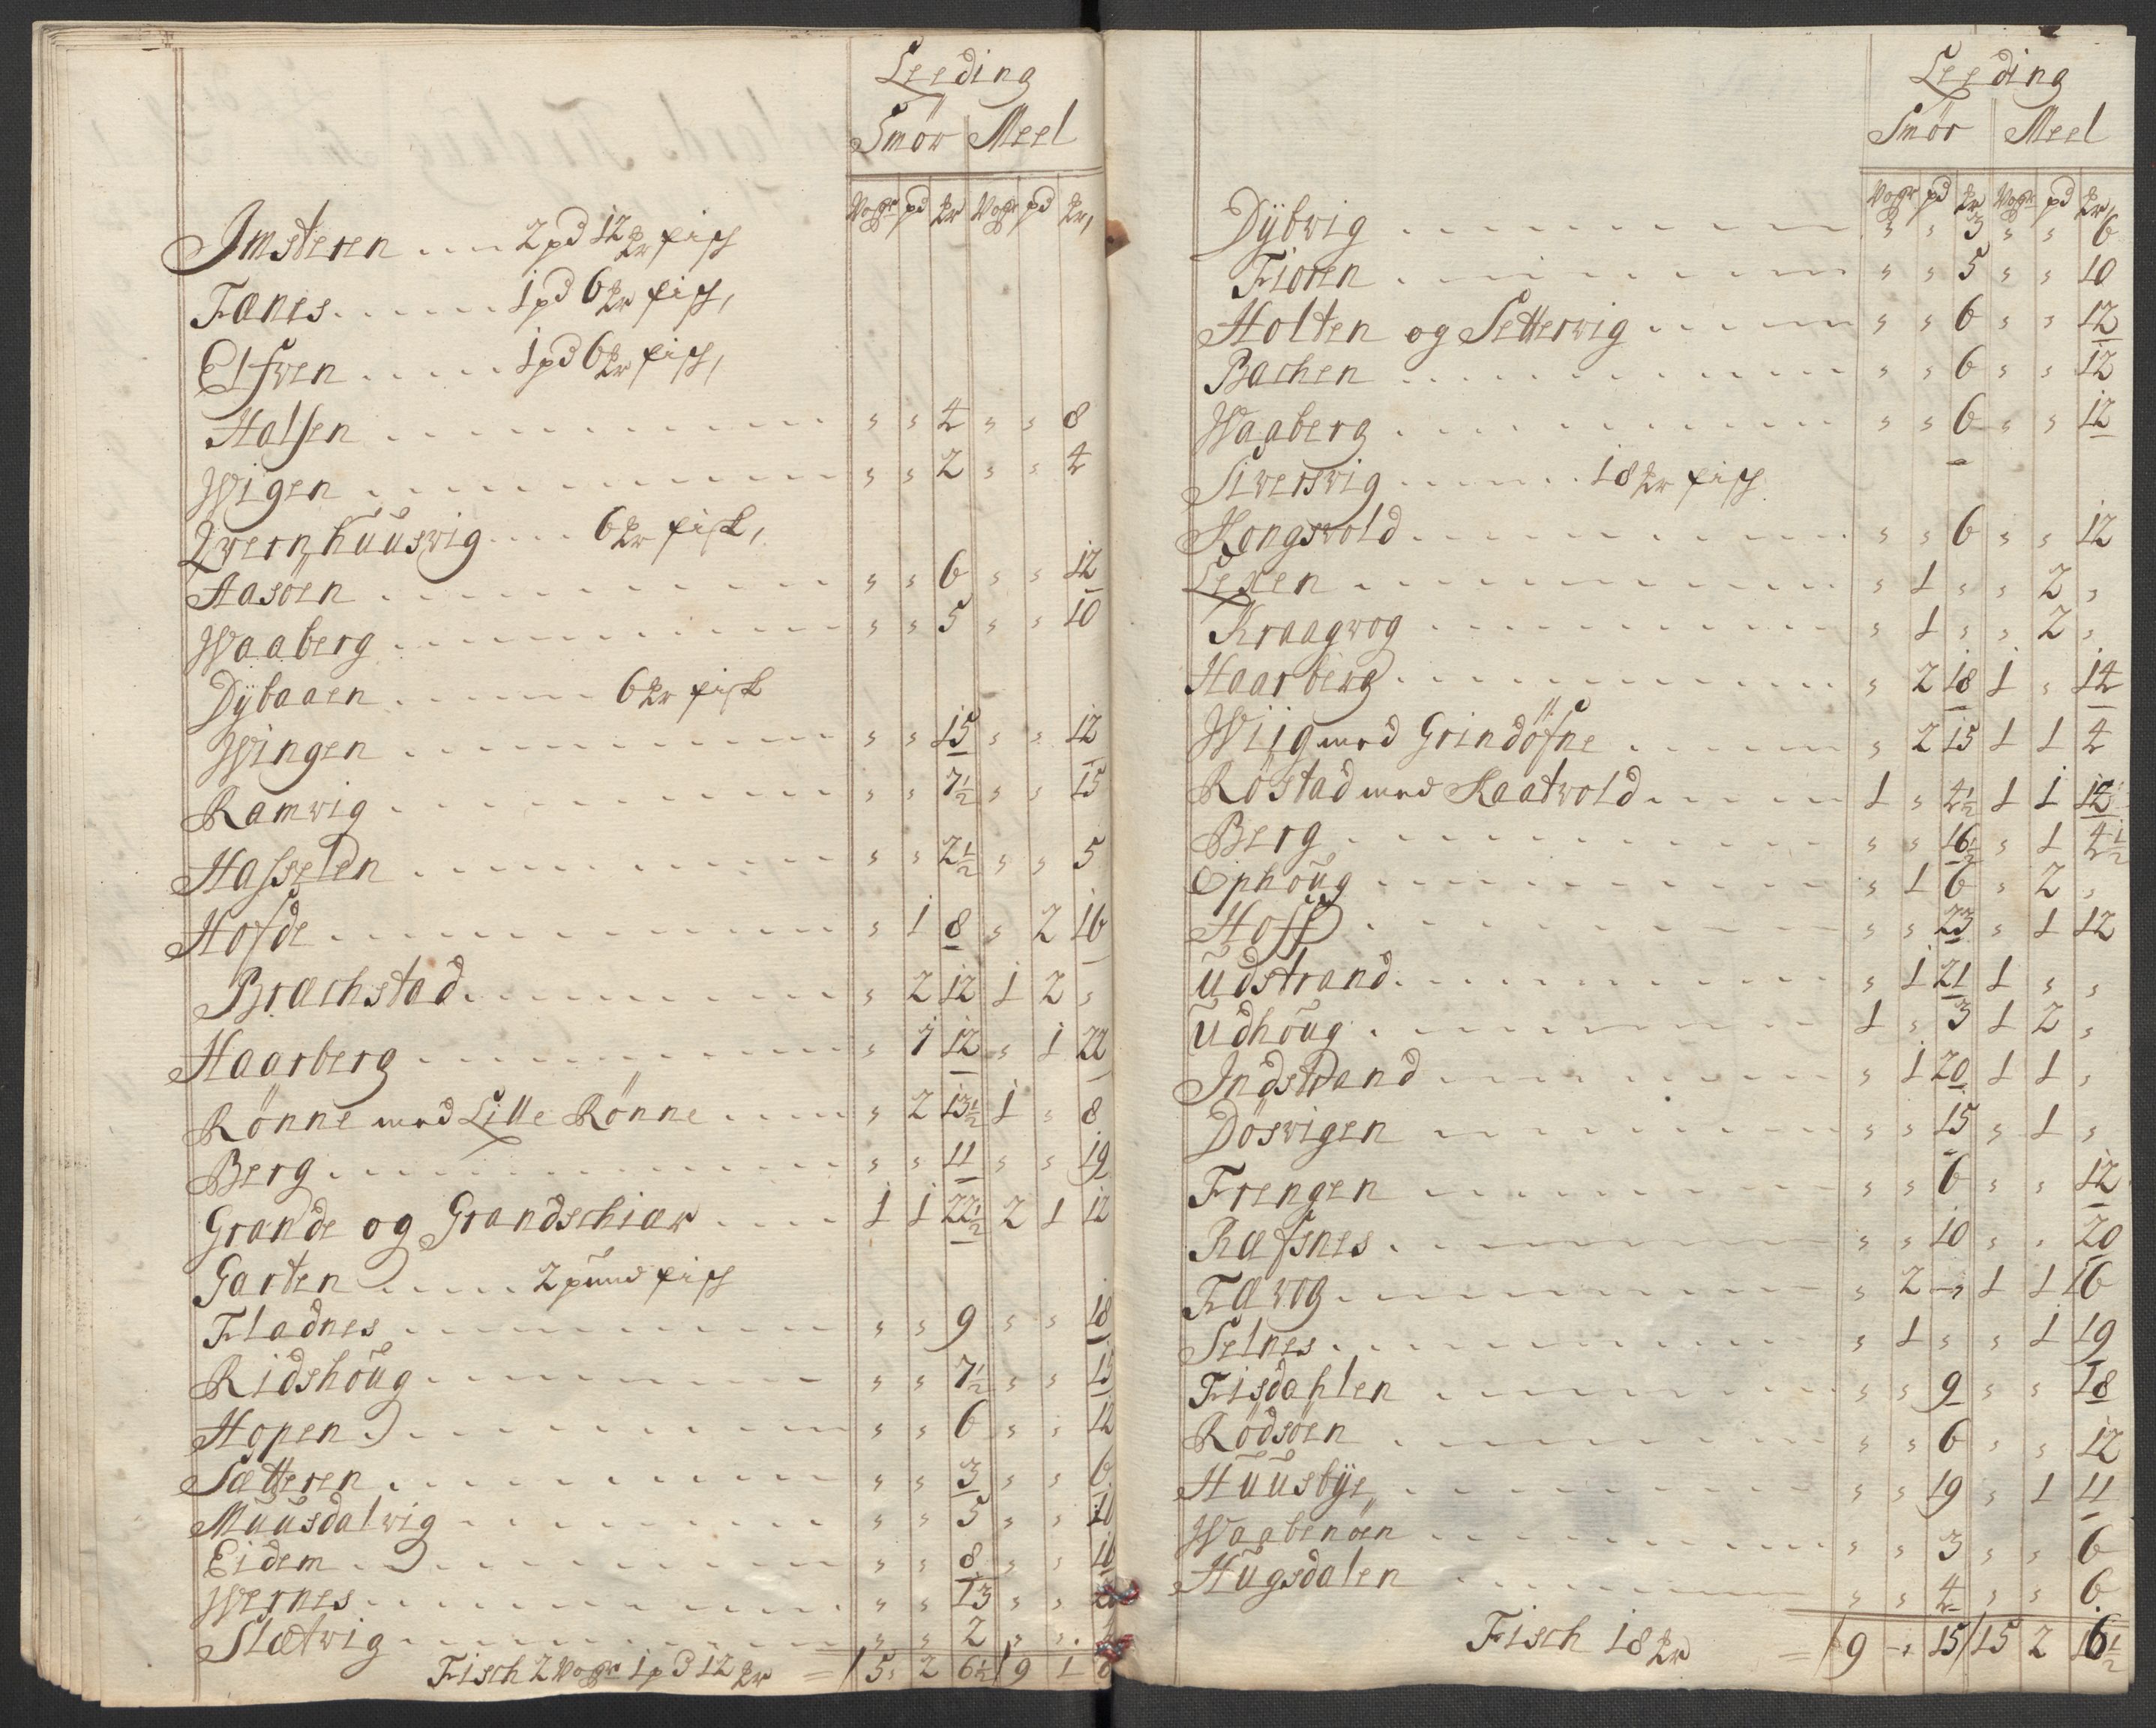 Leeding
Smör Meel
Vogr pd ℔r Vogr pd ℔r,
Jmsteren .... 2 pd 12 ℔r fisch
Fanes...... 1 pd 6 ℔r fisch,
Elfven ..... 1 pd 6 ℔r fisch,
Halsen . . . . " " 4 " " 8
Wigen . . . . " " 2 " " 4
Qvernhuusvig.... 6 ℔r fisk,
Aasöen . . . . " " 6 " " 12
Waaberg . . . . " " 5 " " 10
Dÿbaaen ...... 6 ℔r fisk
Wingen . . . . " " 15 " " 12
Ramvig . . . . " " 7½ " " 15
Hasselen . . . . " " 2½ " " 5
Hofde . . . . " 1 8 " 2 16
Brachstad . . . . " 2 12 1 2 "
Haarberg . . . . " 1 12 " 1 22
Rönne med Lille Rönne . . . . " 2 13½ 1 " 8
Berg . . . . " " 11 " " 19
Grande og Grandschiær . . . . 1 1 22½ 2 1 12
Garten ..... 2 pund fisch
Fladnes . . . . " " 9 " " 18
Ridshöug . . . . " " 7½ " " 15
Hopen . . . . " " 6 " " 12
Sætteren . . . . " " 3 " " 6
Muusdalvig . . . . " " 5 " " 10
Eidem . . . . " " 8 " " 16
Wernes . . . . " " 13 " "
Slætvig . . . . " " 2 " "
Fisch 2 Vogr 1 pd 12 ℔r = 5 " 2 6½ 9 1
Leeding
Smör Meel
Vogr pd ℔r Vogr pd ℔r,
Dÿbvig . . . . " " 3 " " 6
Fioren . . . . " " 5 " " 10
Holten og Settervig . . . . " " 6 " " 12
Bachen . . . . " " 6 " " 12
Waaberg . . . . " " 6 " " 12
Siversvig ...... 18 ℔r fisch
Kongsvold . . . . " " 6 " " 12
Lexen . . . . " 1 " " 2 "
Kraagvog . . . . " 1 " " 2 "
Haarberg . . . . " 2 18 1 " 14
Wiig med Grindöfne . . . . " 2 15 1 1 4
Röstad med Kaatvold . . . . 1 " 4½ 1 1 12
Berg . . . . " " 16½ " 1 4½
Ophöug . . . . " 1 6 " 2 "
Hoff . . . . " " 23 " 1 12
Udstrand . . . . " 1 21 1 " "
Udhöug . . . . 1 " 3 1 2 "
Jndstrand . . . . " 1 20 1 1 "
Dösvigen . . . . " " 15 " 1 "
Frengen . . . . " " 6 " " 12
Ræfsnes . . . . " " 10 " " 20
Fævog . . . . " 2 " 1 1 16
Selnes . . . . " 1 " " 1 19
Frisdahlen . . . . " " 9 " " 18
Rödsöen . . . . " " 6 " " 12
Huusbÿe . . . . " " 19 " 1 11
Waabenöen . . . . " " 3 " " 6
Hugsdalen . . . . " " 4 " " 6
Fisch 18 ℔r = 9 " 15 15 2